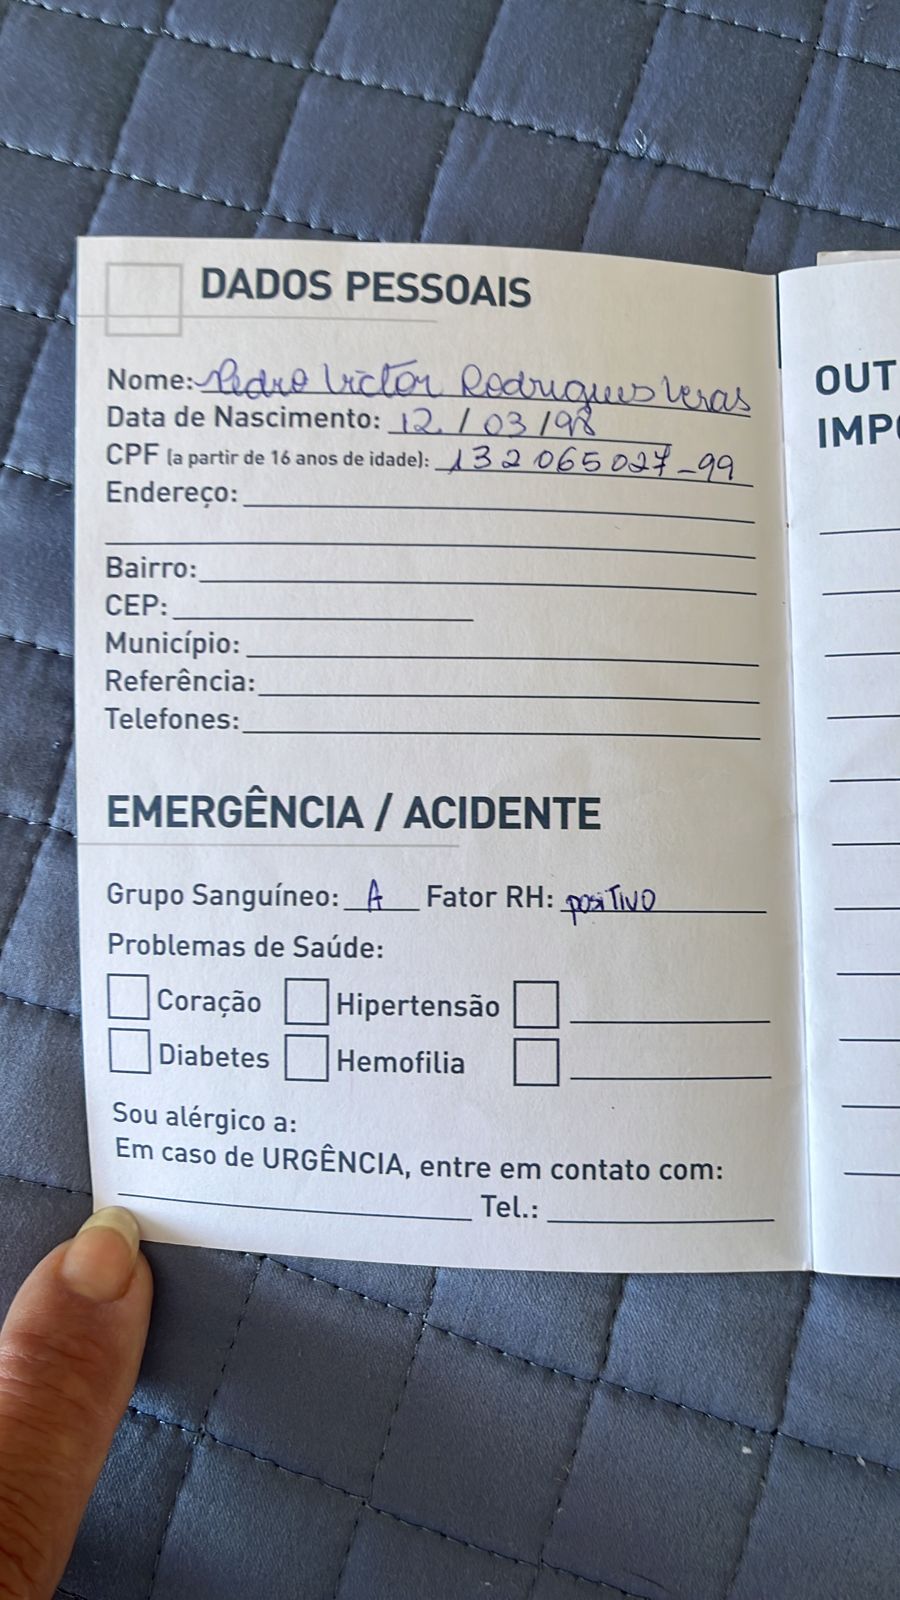 DADOS PESSOAIS
Nome: Pedro Victor Rodrigues Veras
Data de Nascimento: 12 / 03 / 98
CPF (a partir de 16 anos de idade): 132 065 027-99
Endereço:
Bairro:
CEP:
Município:
Referência:
Telefones:
EMERGÊNCIA / ACIDENTE
Grupo Sanguíneo: A Fator RH: posiTiVO
Problemas de Saúde:
Coração Hipertensão
Diabetes Hemofilia
Sou alérgico a:
Em caso de URGÊNCIA, entre em contato com:
Tel.:
OUT
IMPO